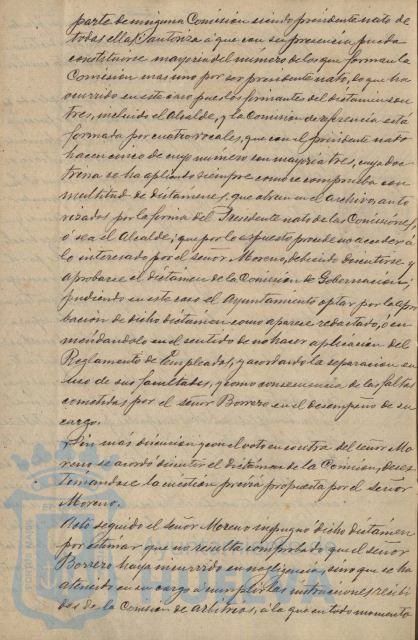 parte de ninguna Comisión siendo presidente nato de
todas ellas, autoriza á que con su presencia pueda
constituirse mayoria del número de los que forman la
Comisión mas uno por ser presidente nato, lo que ha
ocurrido en este caso pues los firmantes del dictámen son
tres, incluido el Alcalde, y la Comisión de referencia está
formada por cuatro vocales, que con el presidente nato
hacen cinco de cuyo número son mayoria tres, cuya doc-
trina se ha aplicado siempre como se comprueba con
multitud de dictámenes, que obran en el archivo, auto
rizados por la forma del Presidente nato de las Comisiones,
ó sea el Alcalde; que por lo expuesto procede no acceder á
lo interesado por el señor Moreno, debiendo discutirse y
aprobarse el dictámen de la Comisión de Gobernación;
pudiendo en este caso el Ayuntamiento optar por la apro
bación de dicho dictámen como aparece redactado, ó en
mendándolo en el sentido de no hacer aplicación del
Reglamento de Empleados, y acordando la separación en
uso de sus facultades, y como consecuencia de las faltas
cometidas por el señor Borrero en el desempeño de su
cargo.
Sin más discusion y con el voto en contra del señor Mo
reno se acordó discutir el dictámen de la Comision, deses
timándose la cuestión previa propuesta por el señor
Moreno.
Acto seguido el señor Moreno impugnó dicho dictámen
por estimar que no resulta comprobado que el señor
Borrero haya incurrido en negligencia, sino que se ha
atenido en su cargo á cumplir las instrucciones recibi
das de la Comisión de arbitrios, á la que en todo momento
PORTUS MARIS
HUELVA